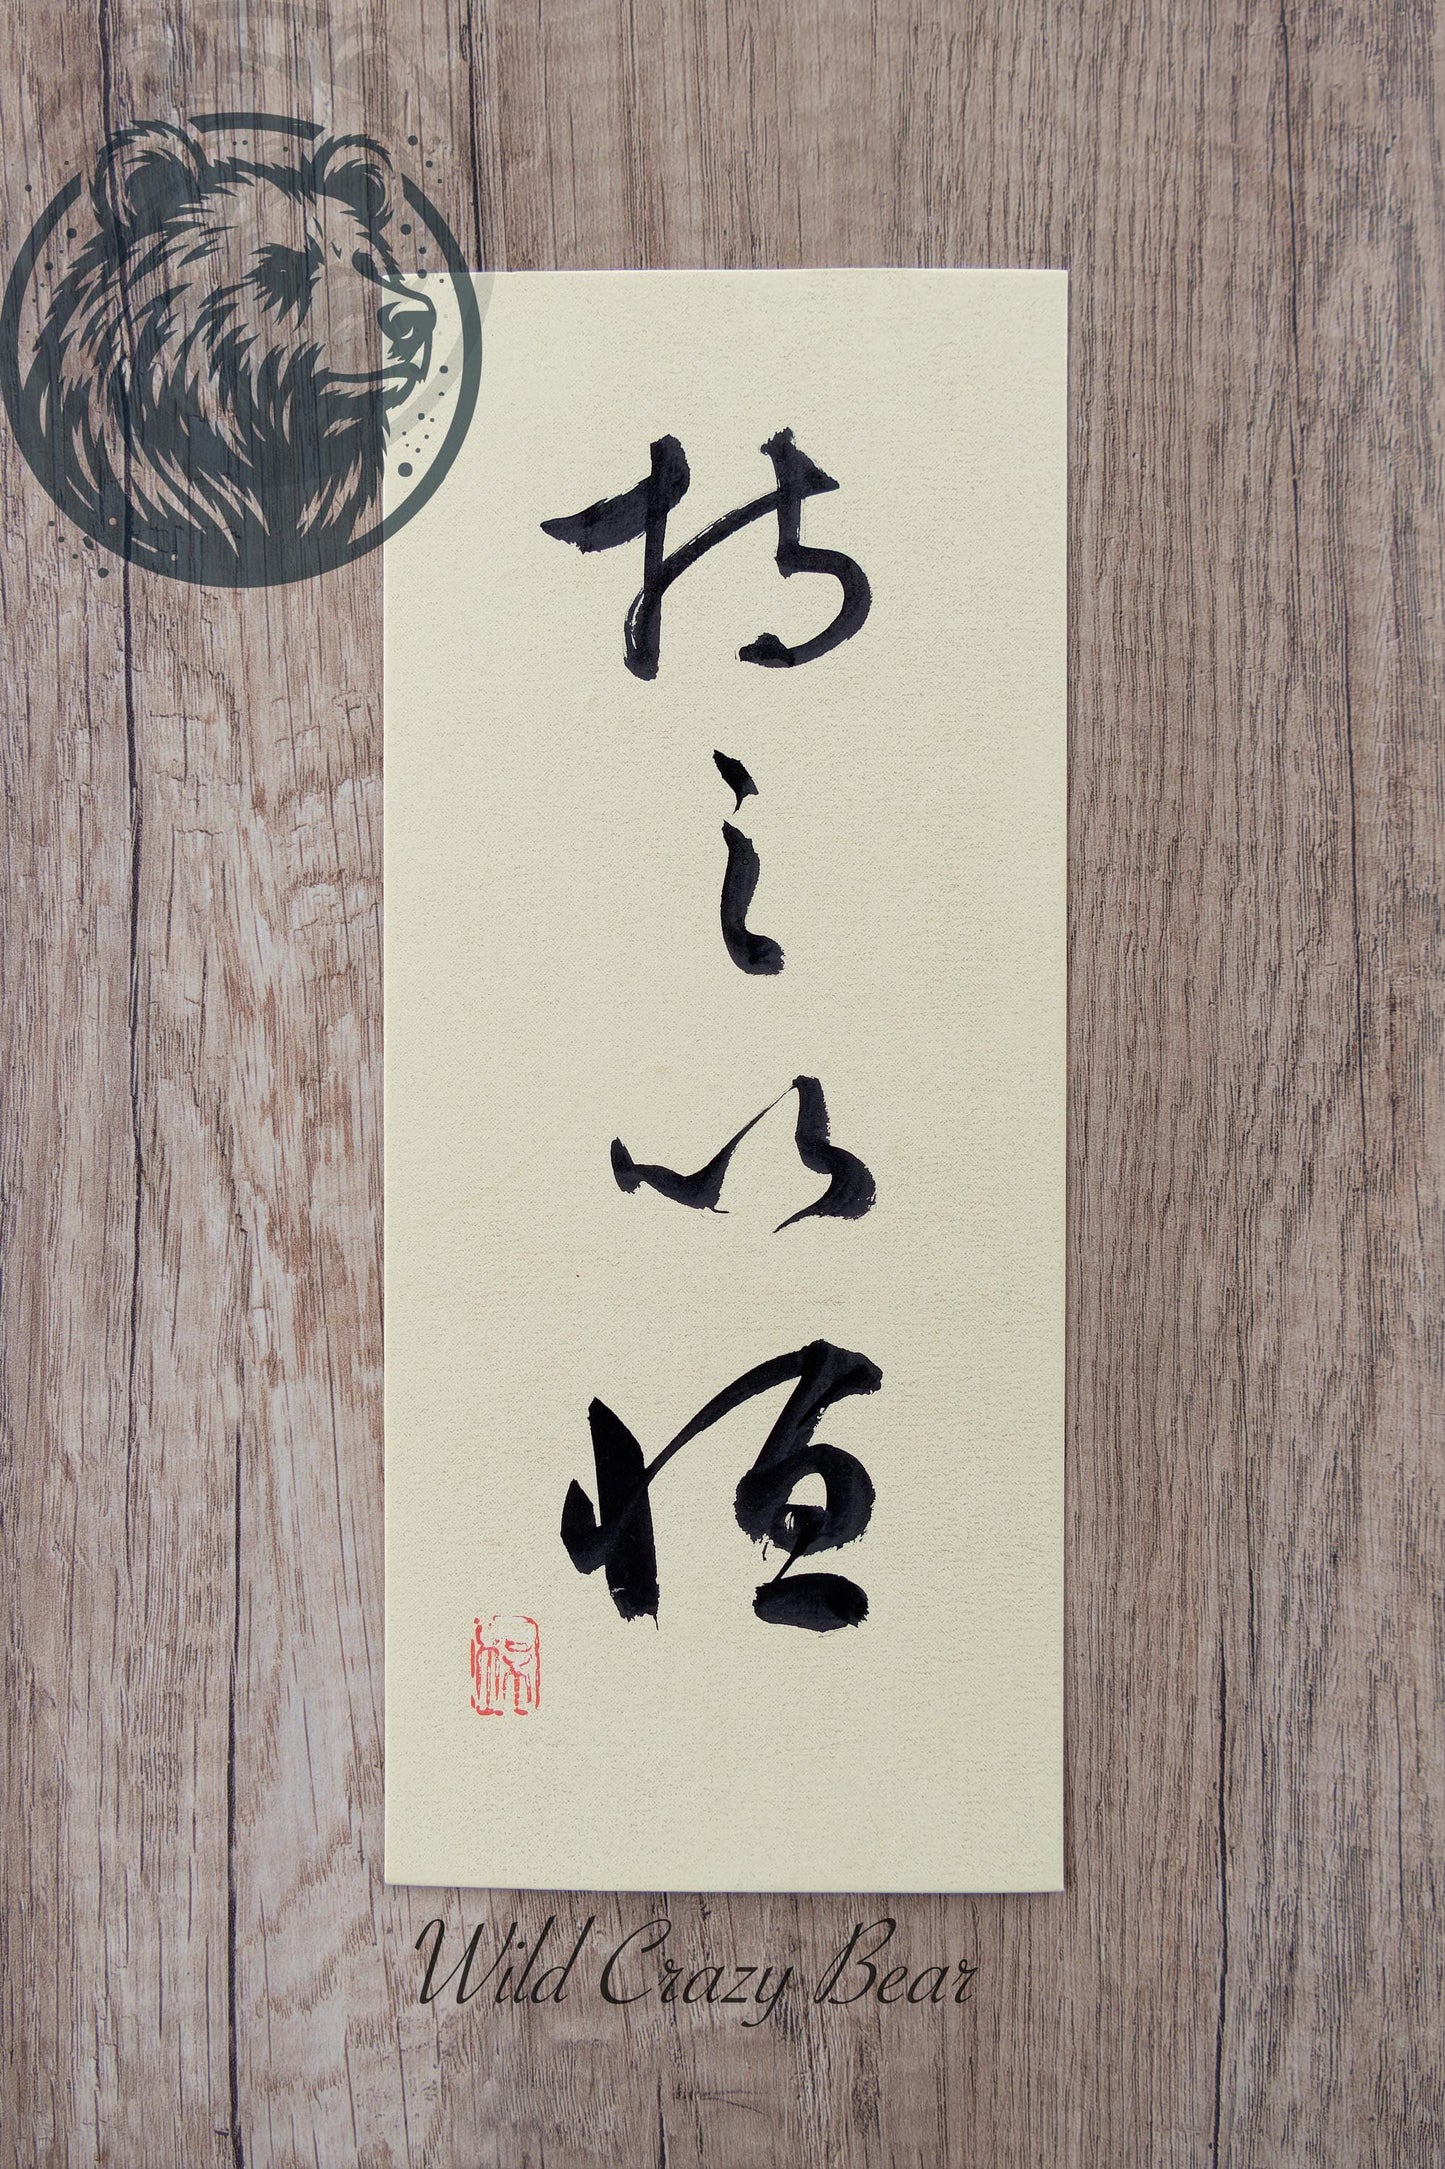 持之以恒
Wild Crazy Bear